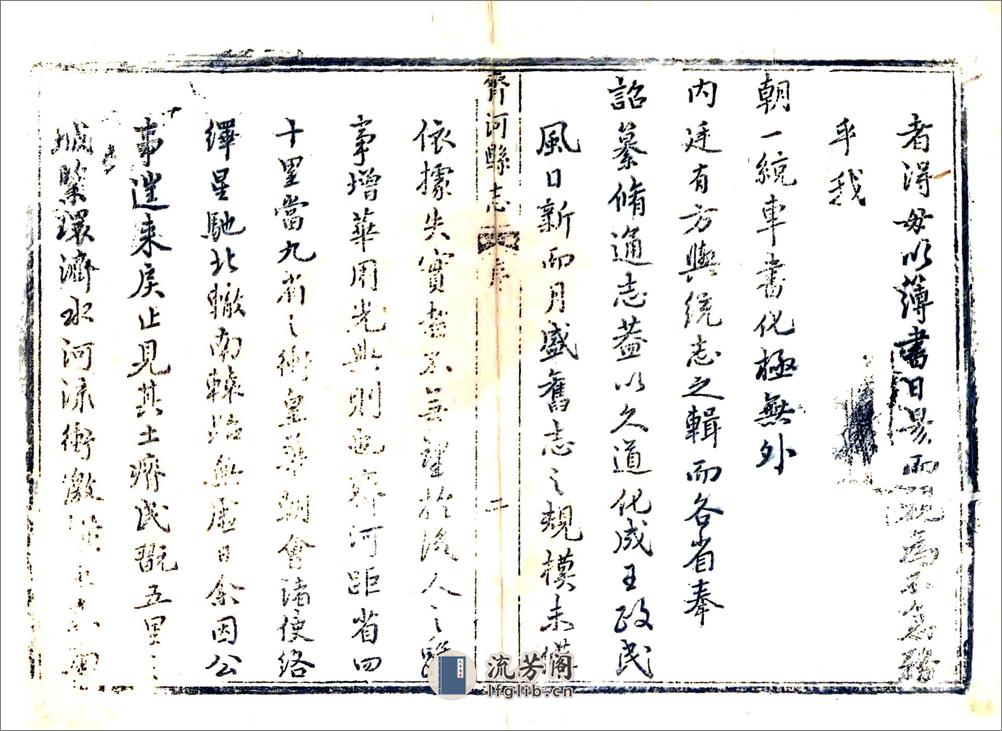 者得毋以薄書日昃而視為不急務
乎我
朝一統車書化極無外
內廷有方輿統志之輯而各省奉
詔纂脩通志蓋以久道化成王政民
風日新而月盛舊志之規模未備
齊河縣志 序 二
依據失實者不無望於後人之
事增華用光典則也齊河距省四
十里當九省之衝皇華朝會諸使絡
繹星馳北轍南轅殆無虛日余因公
事道來戾止見其土瘠民翫五里之
城緊環濟水河流衝激
流芳閣
lfglib.cn